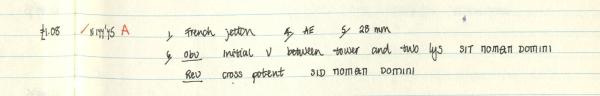 £1.08 A 1, French jetton 4, AE 5, 28 mm
6, Obv initial V between tower and two lys SIT NOMEN DOMINI
Rev cross potent SID NOMEN DOMINI